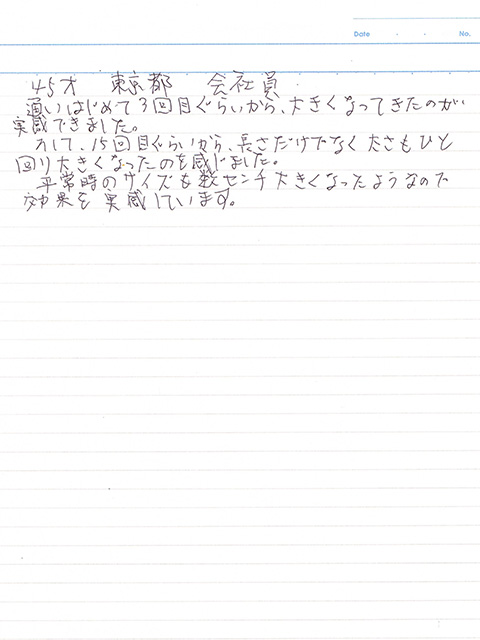 Date
No.
45才 東京都 会社員
通いはじめて3回目ぐらいから、大きくなってきたのが
実感できました。
そして、15回目ぐらいから、長さだけでなく太さもひと
回り大きくなったのを感じました。
平常時のサイズも数センチ大きくなったようなので
効果を実感しています。